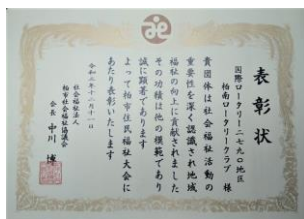 表彰状
国際ロータリー二七九〇地区
柏南ロータリークラブ 様
貴団体は社会福祉活動の
重要性を深く認識され地域
福祉の向上に貢献されました
その功績は他の模範であり
誠に顕著であります
よって柏市住民福祉大会に
あたり表彰いたします
令和元年十二月十一日
社会福祉法人
柏市社会福祉協議会
会長 中川 博